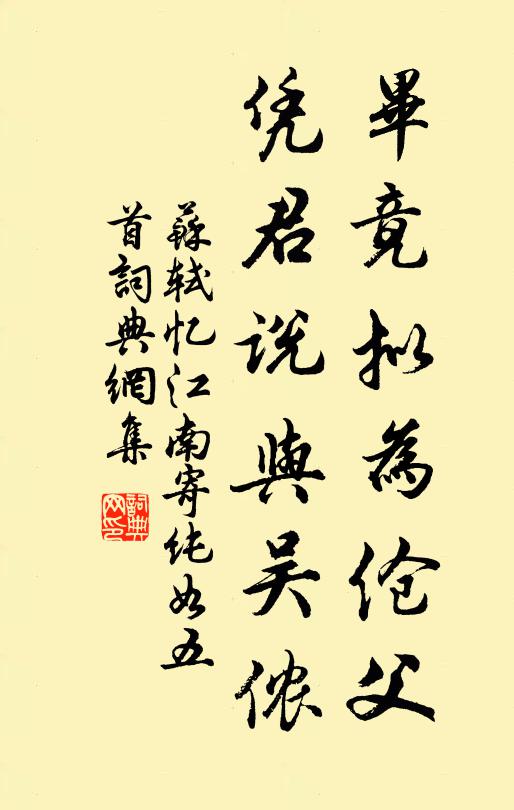 畢竟拟為伧父
凭君说與吴侬
蘇轼忆江南寄纯如五
首詞典網集
詞典
网印